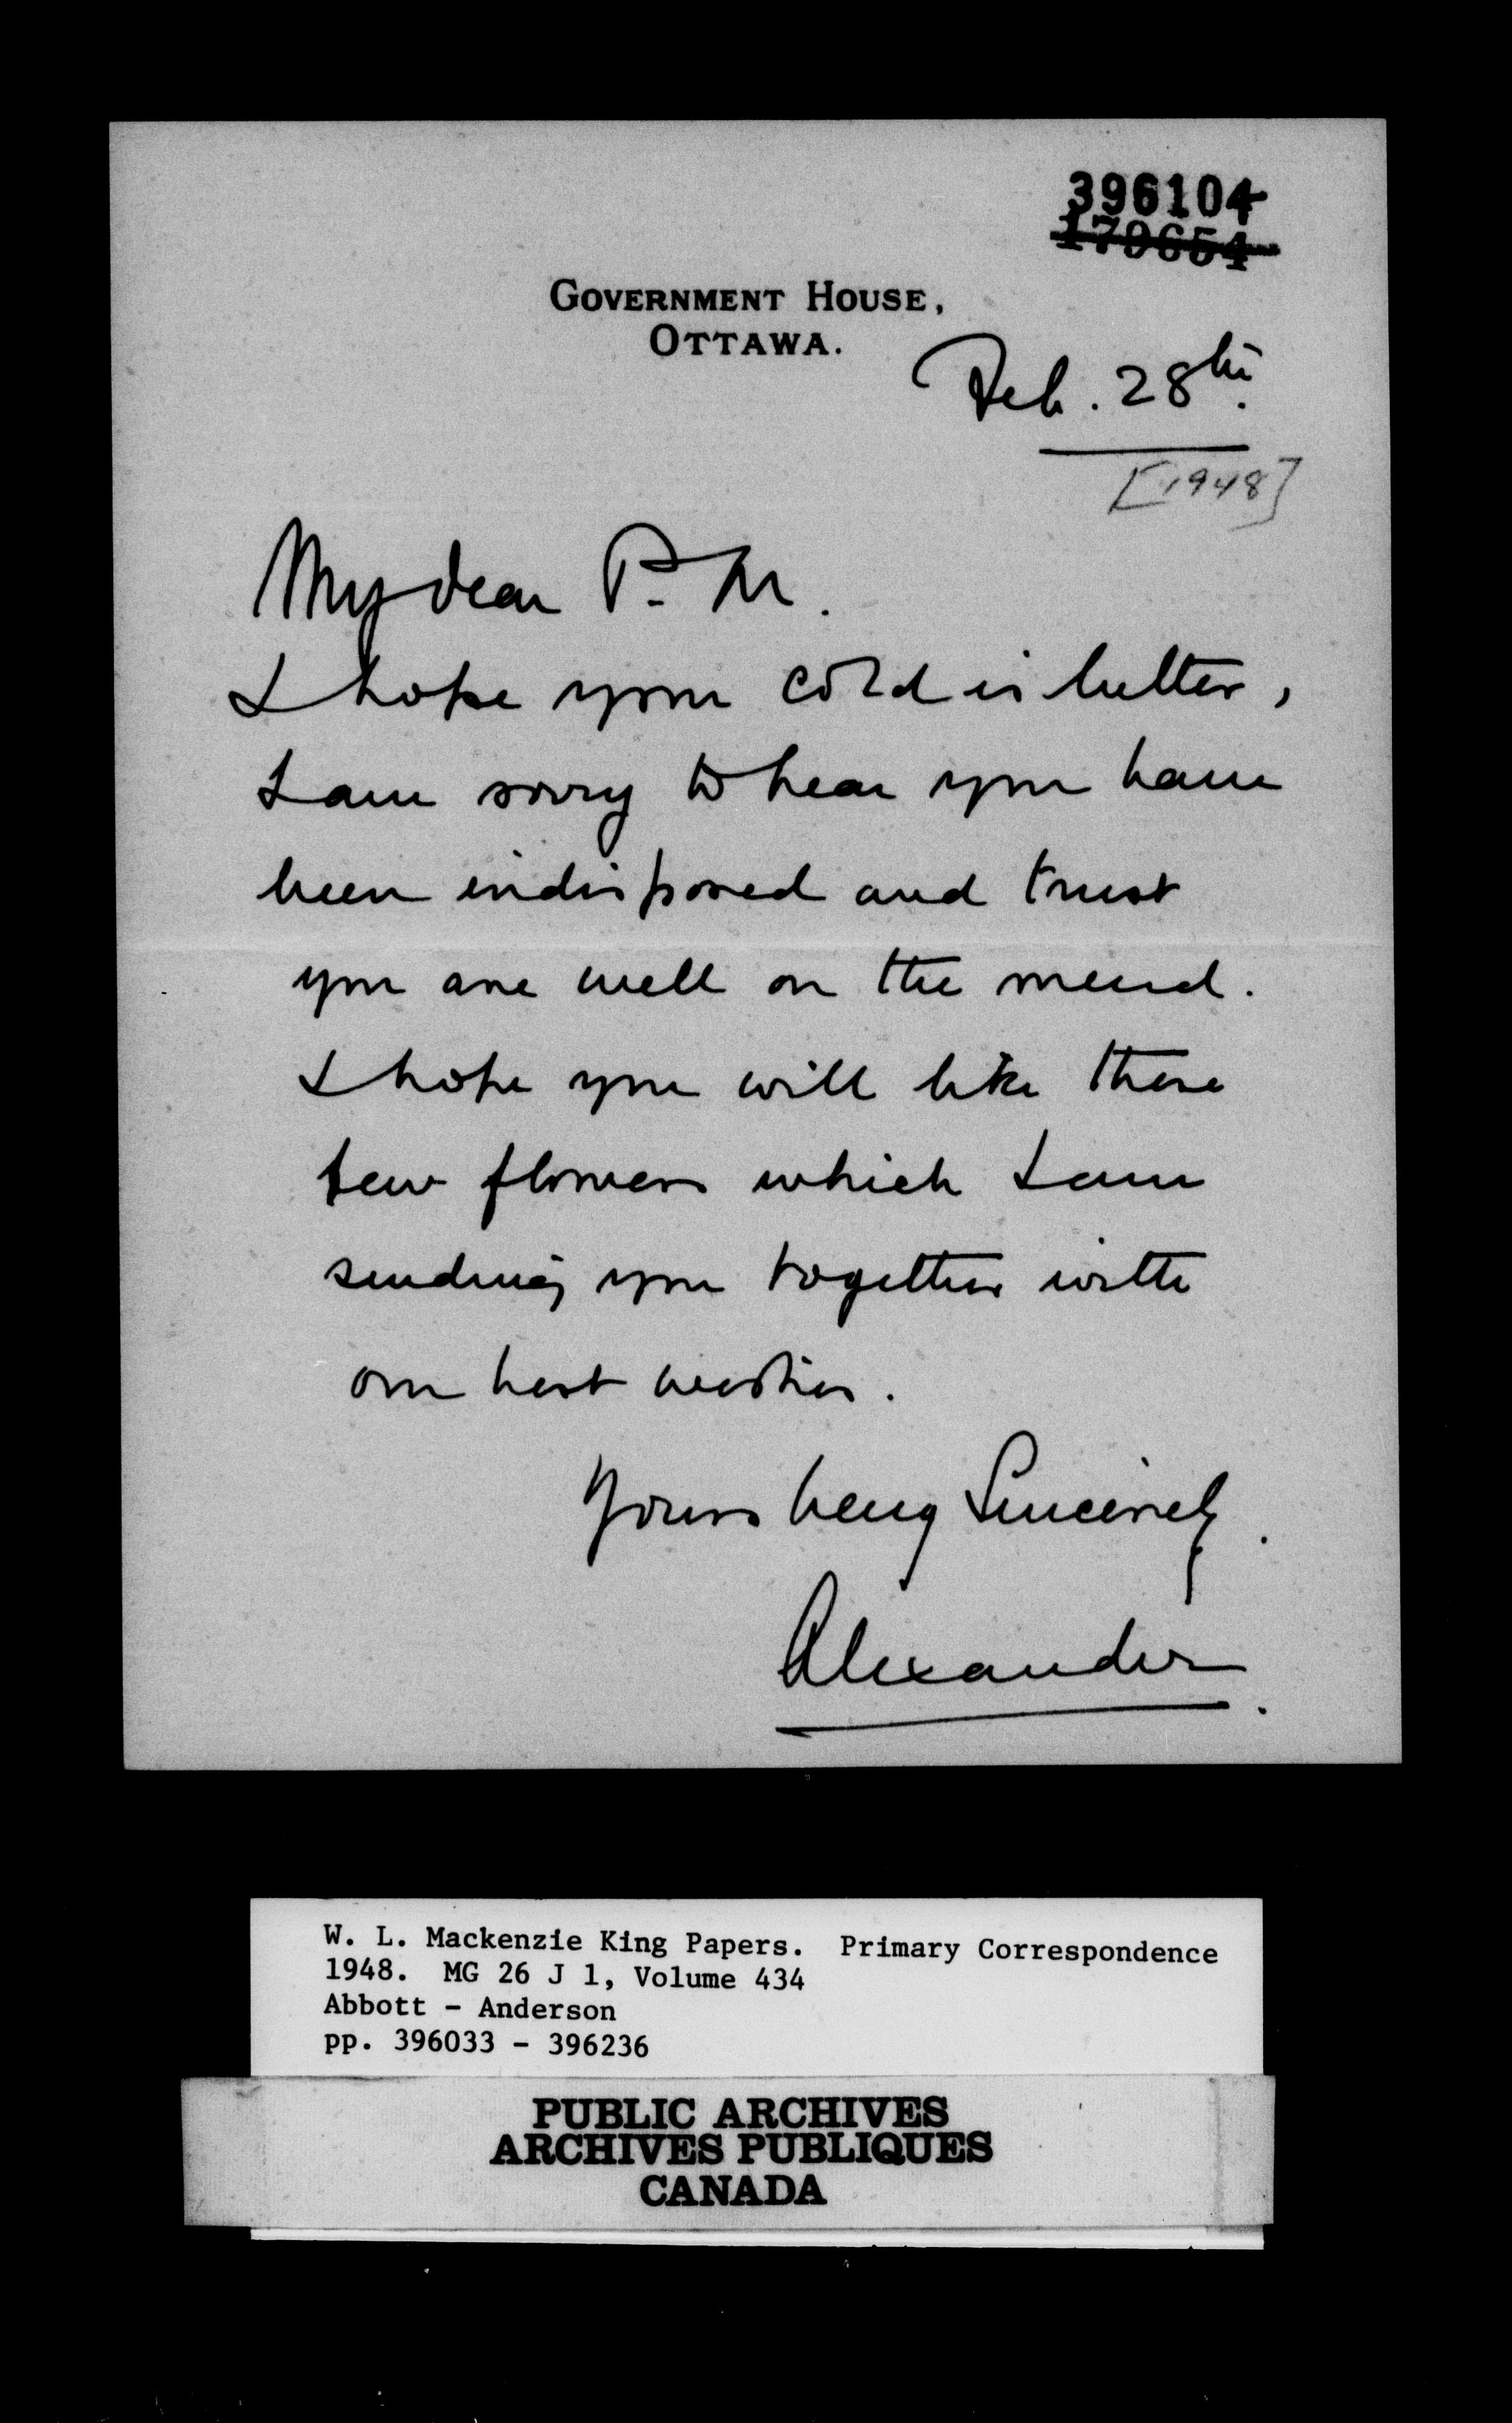 396104
179654
GOVERNMENT HOUSE,
OTTAWA.
Feb. 28th.
[1948]
My dear P. M.
I hope your cold is better,
I am sorry to hear you have
been indisposed and trust
you are well on the mend.
I hope you will like these
few flowers which I am
sending you together with
our best wishes.
Yours very Sincerely.
Alexander.
W. L. Mackenzie King Papers. Primary Correspondence
1948. MG 26 J 1, Volume 434
Abbott - Anderson
pp. 396033 - 396236
PUBLIC ARCHIVES
ARCHIVES PUBLIQUES
CANADA